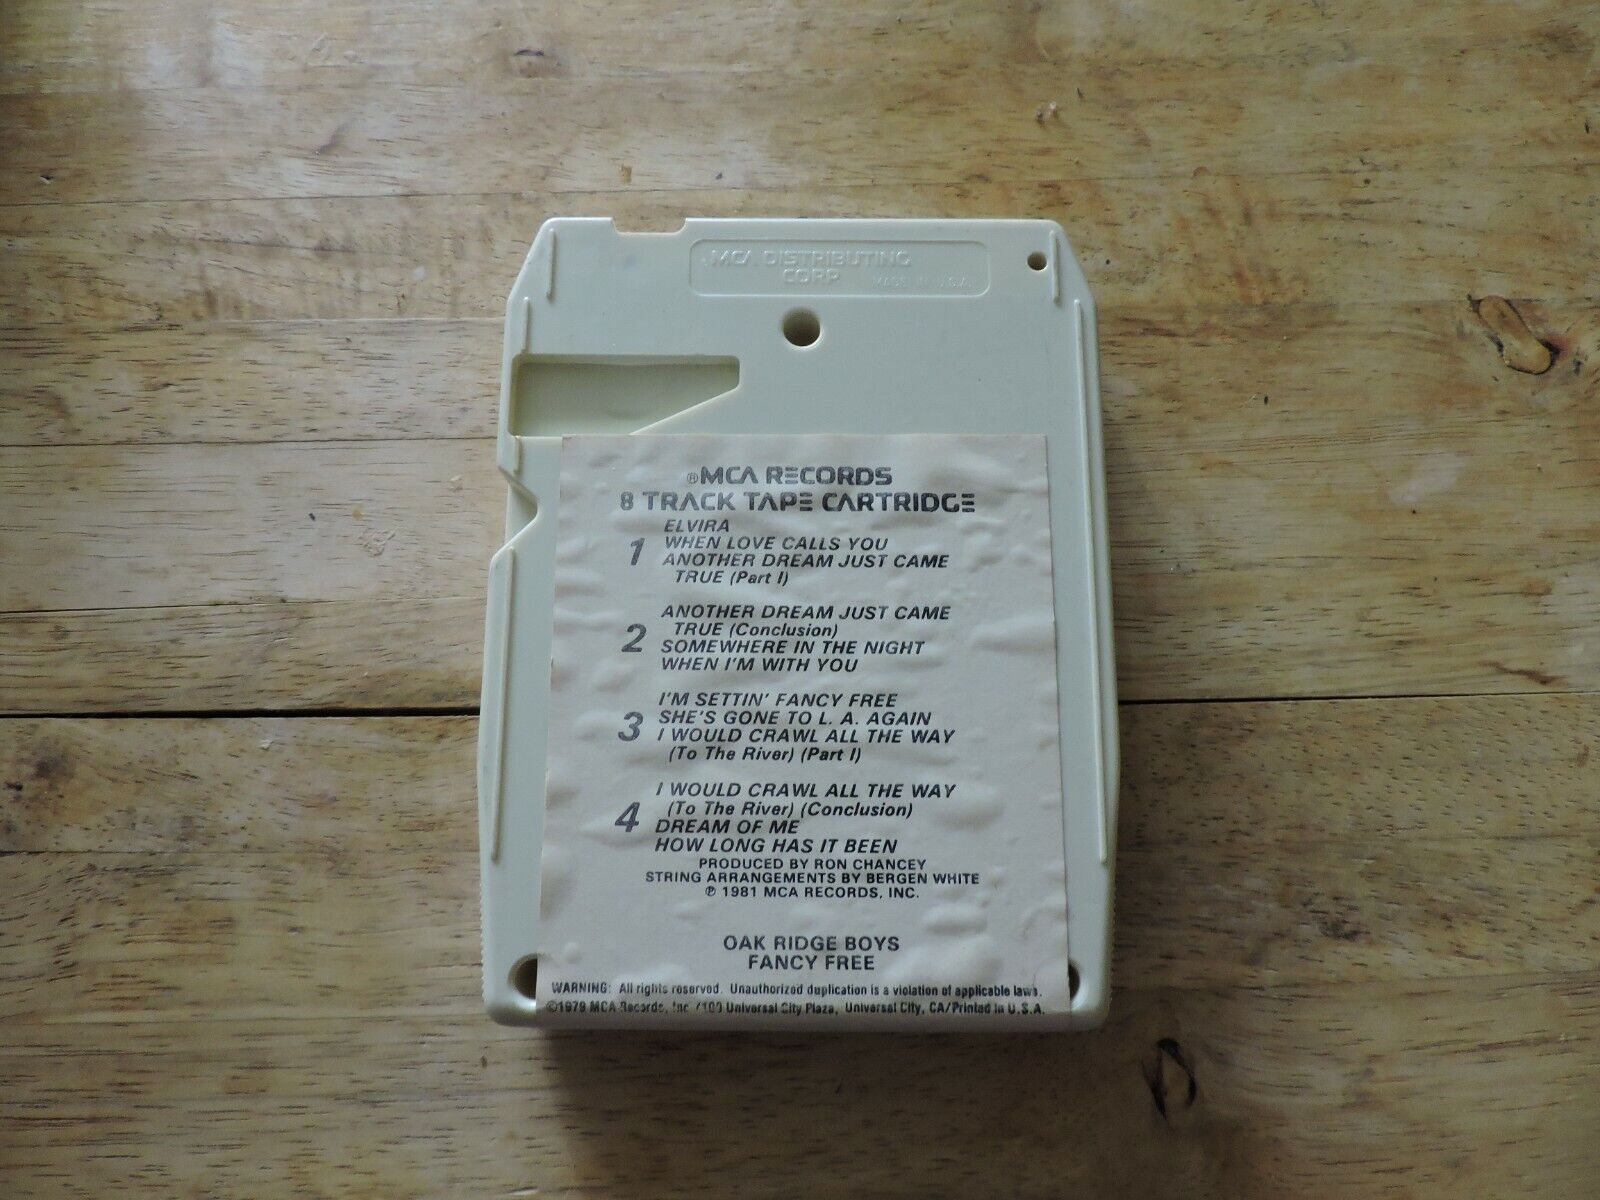 MCA DISTRIBUTING
CORP. MADE IN U.S.A.
®MCA RECORDS
8 TRACK TAPE CARTRIDGE
1
ELVIRA
WHEN LOVE CALLS YOU
ANOTHER DREAM JUST CAME
TRUE (Part I)
2
ANOTHER DREAM JUST CAME
TRUE (Conclusion)
SOMEWHERE IN THE NIGHT
WHEN I'M WITH YOU
3
I'M SETTIN' FANCY FREE
SHE'S GONE TO L. A. AGAIN
I WOULD CRAWL ALL THE WAY
(To The River) (Part I)
4
I WOULD CRAWL ALL THE WAY
(To The River) (Conclusion)
DREAM OF ME
HOW LONG HAS IT BEEN
PRODUCED BY RON CHANCEY
STRING ARRANGEMENTS BY BERGEN WHITE
℗ 1981 MCA RECORDS, INC.
OAK RIDGE BOYS
FANCY FREE
WARNING: All rights reserved. Unauthorized duplication is a violation of applicable laws.
©1979 MCA Records, Inc. /100 Universal City Plaza, Universal City, CA/Printed in U.S.A.